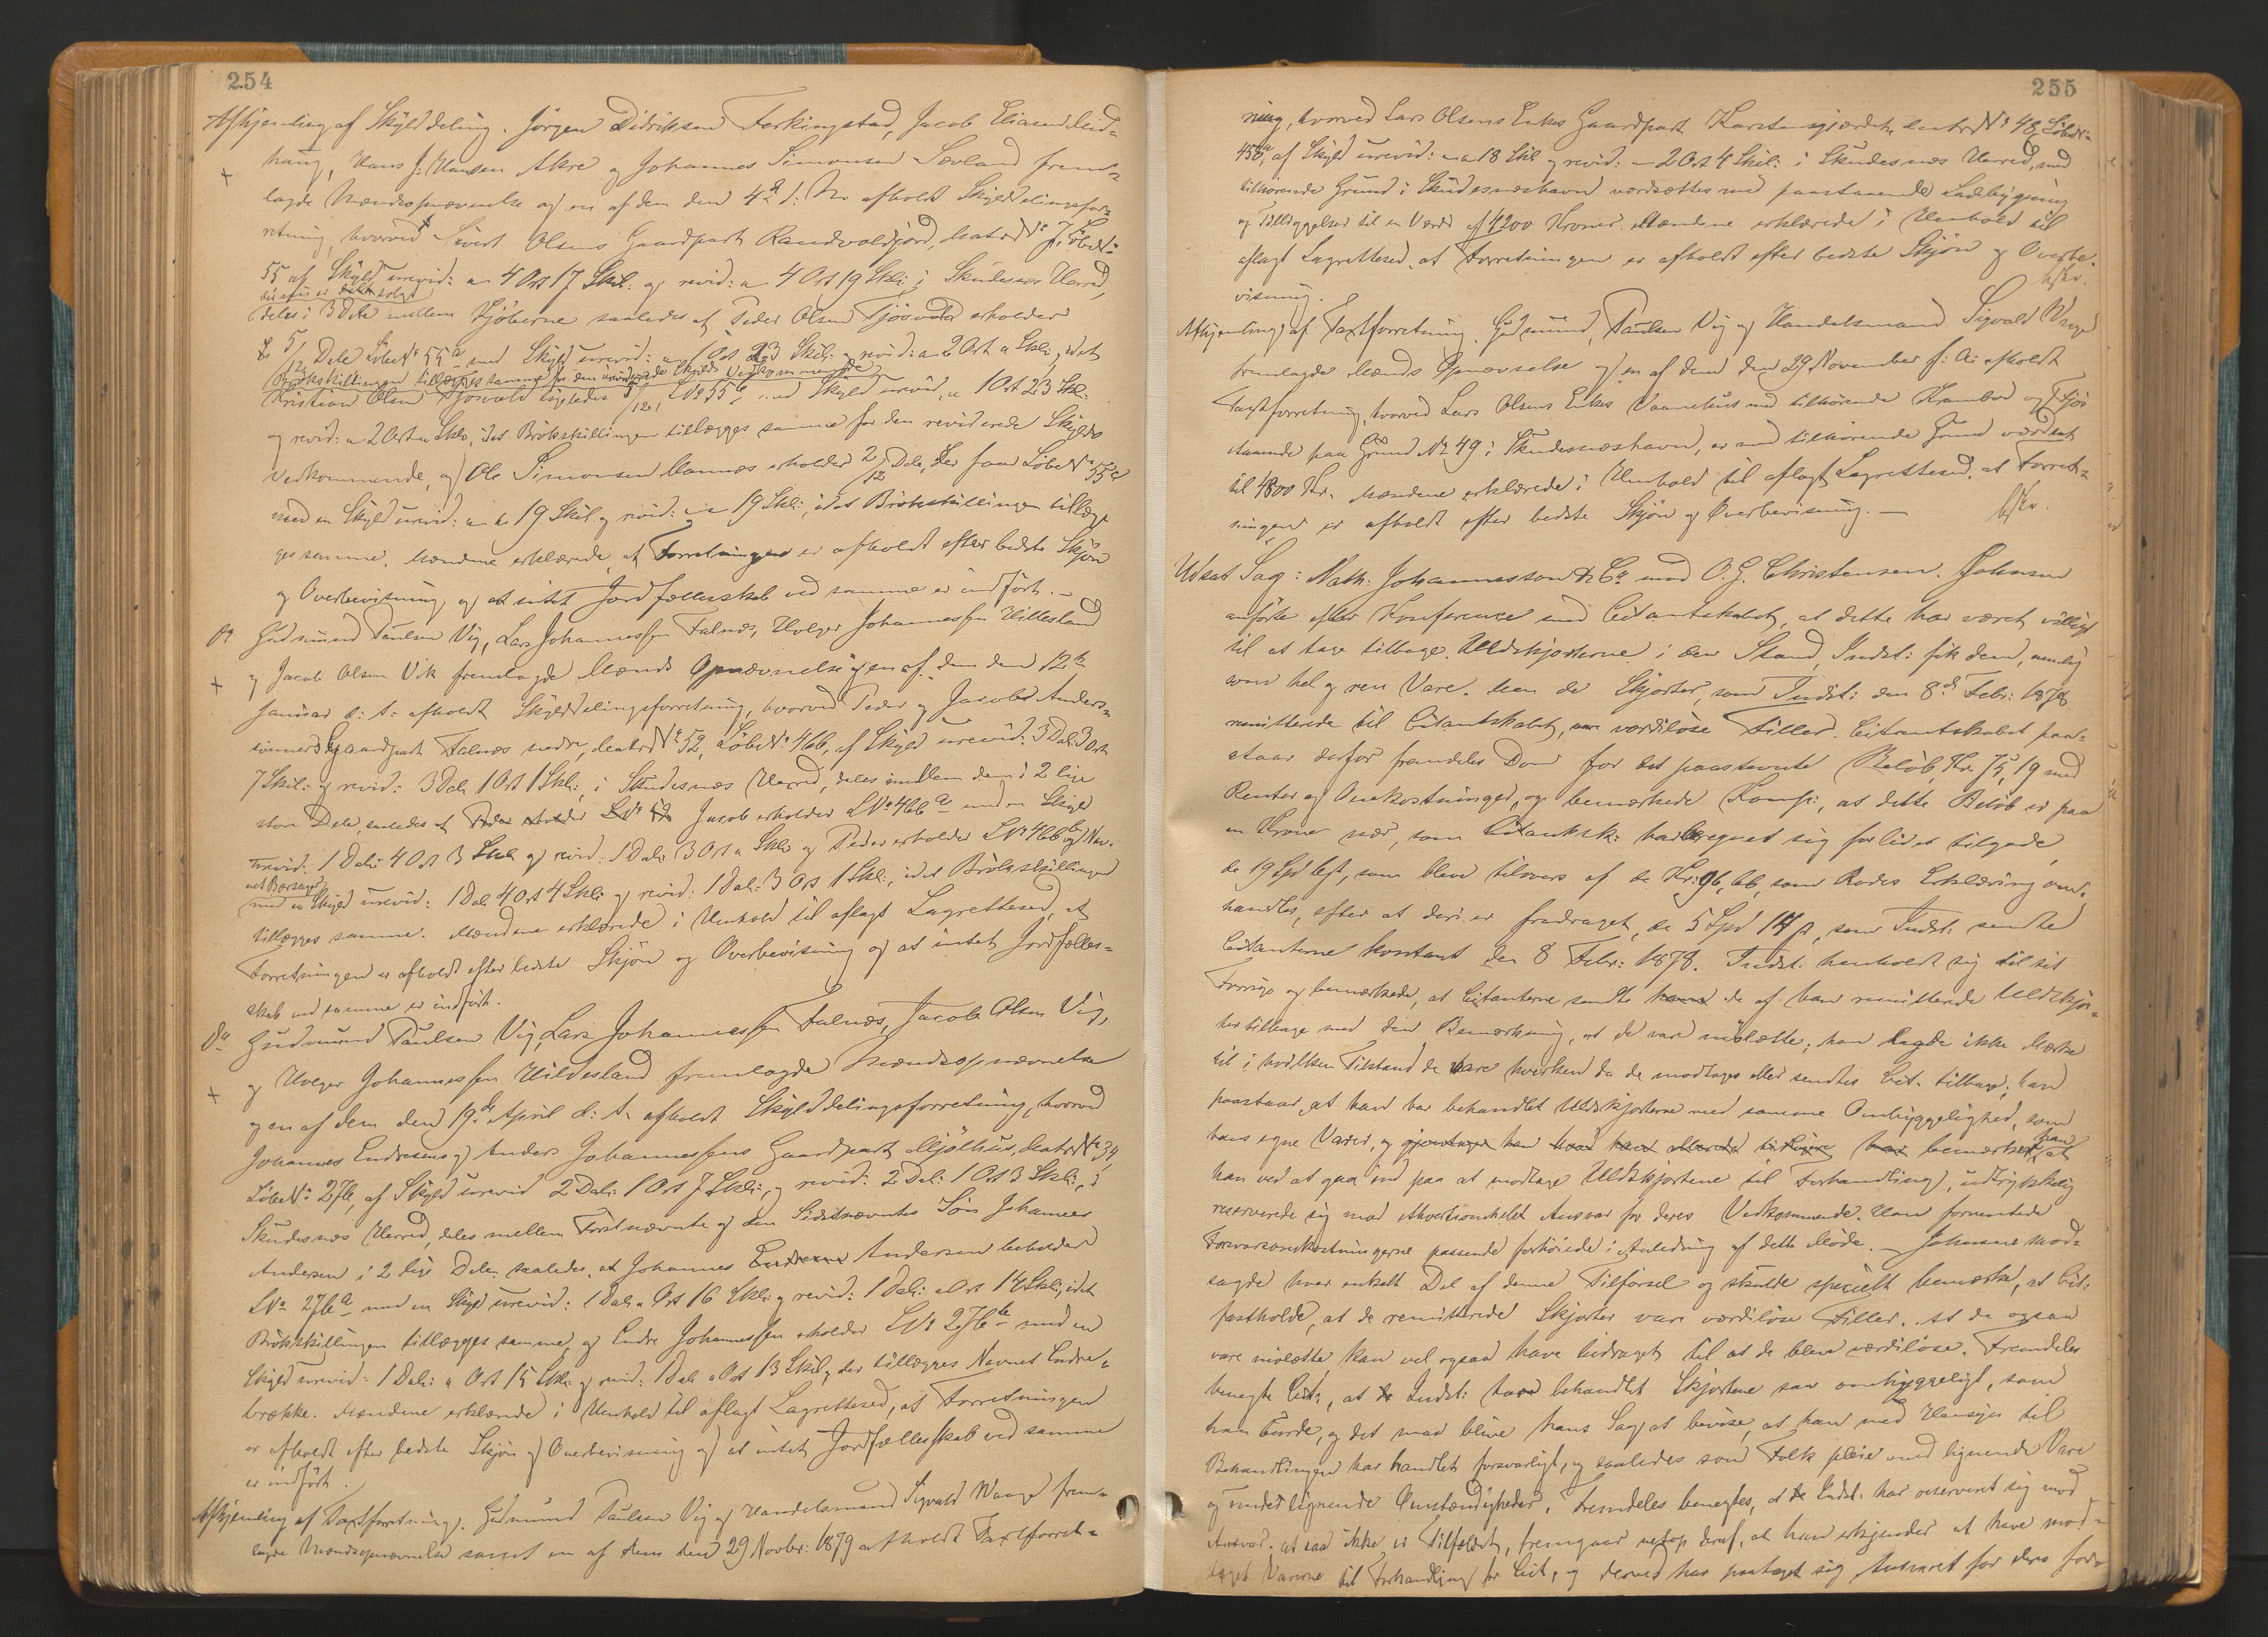 254
Afhjemling af Skylddeling. Jörgen Didriksen Ferkingstad, Jacob Eliasen Lid-
haug, Hans J. Hansen Akre og Johannes Simonsen Sævland frem-
lagde Mændsopnævnelse og en af dem den 4de d: M: afholdt Skylddelingsfor-
retning, hvorved Sivert Olsens Gaardpart Matr. No 7, Löbe No
55 af Skyld urevid: a 4 Ort 17 Skil: og revid: a 4 Ort 19 Skil: i Skudesnes Herred,
der nu er solgt
deles i 3 Dele mellem Kjöberne saaledes at Peder Olsen Tjösvold erholder
5/12 Dele Löbe No 55a med Skyld urevid: a 1 Ort 23 Skil: og revid: a 2 Ort a Skil:, idet
Brökskillingen tillægges samme for den urevid Skylds Vedkommende
Kristian Olsen Tjösvold ligeledes 5/12, L No 55b, med Skyld urevid. a 1 Ort 23 Skl.
og revid: a 2 Ort a Skil:, idet Brökskillingen tillægges samme for den reviderede Skylds
Vedkommende, og Ole Simonsen Mannæs erholder 2/12 Dele, der faar Löbe No 55c
med en Skyld urevid: a a 19 Skil og revid: a a 19 Skil:, idet Brökskillingen tillæg-
ges samme. Mændene erklærede, at Forretningen er afholdt efter bedste Skjön
og Overbevisning og at intet Jordfællesskab ved samme er indfört. -
Do Gudmund Paulsen Vig, Lars Johannessen Falnæs, Holger Johannessen Hillesland
og Jacob Olsen Vik fremlagde Mænds Opnævnelse og en af dem den 12te
Januar d: A: afholdt Skylddelingsforretning, hvorved Peder og Jacob Anders-
sönners Gaardpart Falnæs nedre, Matr No 52, Löbe No 466, af Skyld urevid: 3 Dal: 3 Ort
7 Skil: og revid: 3 Dal: 1 Ort 1 Skil:, i Skudesnes Herred, deles imellem dem i 2 lige
store Dele, saaledes at Jacob erholder L No 466a med en Skyld
urevid: 1 Dal: 4 Ort 3 Skil: og revid. 1 Dal: 3 Ort a Skil: og Peder erholder L No 466b og Nav-
net
med en Skyld urevid: 1 Dal: 4 Ort 4 Skil: og revid: 1 Dal: 3 Ort 1 Skil:, idet Brökskillingen
tillægges samme. Mændene erklærede i Henhold til aflagt Lagrettesed, at
Forretningen er afholdt efter bedste Skjön og Overbevisning og at intet Jordfælles-
skab ved samme er indfört.
Do Gudmund Paulsen Vig, Lars Johannessen Falnæs, Jacob Olsen Vig,
og Holger Johannessen Hillesland fremlagde Mændsopnævnelse
og en af dem den 19de April d: A: afholdt Skylddelingsforretning, hvorved
Johannes Endresens og Anders Johannessens Gaardpart Mjölhus, Matr No 34,
Löbe No 276, af Skyld urevid 2 Dal: 1 Ort 7 Skil:, og revid: 2 Dal: 1 Ort 3 Skil:, i
Skudesnes Herred, deles mellem Förstnævnte og den Sidstnævntes Sön Johannes
Andersen i 2 lige Dele, saaledes, at Johannes Endresen Andersen beholder
L No 276a med en Skyld urevid: 1 Dal: a Ort 16 Skil: og revid: 1 Dal: a Ort 14 Skil:, idet
Brökskillingen tillægges samme, og Endre Johannessen erholder L No 276b med en
Skyld urevid: 1 Dal: a Ort 15 Skil: og revid: 1 Dal: a Ort 13 Skil:, der tillægges Navnet Endre-
brække. Mændene erklærede i Henhold til aflagt Lagrettesed, at Forretningen
er afholdt efter bedste Skjön og Overbevisning og at intet Jordfællesskab ved samme
er indfört.
Afhjemling af Taxtforretning. Gudmund Paulsen Vig og Handelsmand Sigvald Waage frem-
lagde Mændsopnævnelse samt en af dem den 29 Novbr: 1879 afholdt Taxtforret-
255
ning, hvorved Lars Olsens Enkes Gaardpart Karstensgjærdet, Matr No 48, Löbe No
458a, af Skyld urevid: a a 18 Skil og revid: a 2 Ort 4 Skil: i Skudesnæs Herred, med
tilhörende Grund i Skudesnæshavn værdsættes med paastaaende Ladebygning
og Tilliggelser til en Værdi af 4200 Kroner. Mændene erklærede i Henhold til
aflagt Lagrettesed, at Forretningen er afholdt efter bedste Skjön og Overbe-
visning.
Afhjemling af Taxtforretning. Gudmund Paulsen Vig og Handelsmand Sigvald Waage
fremlagde Mænds Opnævnelse og en af dem den 29 November f: A: afholdt
Taxtforretning, hvorved Lars Olsens Enkes Vaanehus med tilhörende Krambod og Fjös
staaende paa Grund No 49 i Skudesnæshavn, er med tilhörende Grund værdsat
til 4800 Kr. Mændene erklærede i Henhold til aflagt Lagrettesed, at Forret-
ningen er afholdt efter bedste Skjön og Overbevisning. -
Udsat Sag: Nath: Johannesson & Co mod O. G. Christensen. Johnsen
anförte efter Konference med Citantskabet, at dette har været villigt
til at tage tilbage Uldskjorterne i den Stand, Indst: fik dem, nemlig
som hel og ren Vare. Men de Skjorter, som Indst: den 8de Febr: 1878
remitterede til Citantskabet, var værdilöse Filler. Citantskabet paa-
staar derfor fremdeles Dom for det paastevnte Belöb, Kr. 75,19 med
Renter og Omkostninger, og bemærkede Komp:, at dette Belöb er paa
en Krone nær, som Citantsk: har beregnet sig for lidet tilgode,
de 19 Spd , som blev tilovers af de Kr: 96,66, som Rodes Erklæring om-
handler, efter at deri er fradraget de 5 Spd 14 , som Indst: sendte
Citanterne kontant den 8 Febr: 1878. Indst: henholdt sig til sit
Forrige og bemærkede, at Citanterne sendte ham de af ham remitterede Uldskjor-
ter tilbage med den Bemærkning, at de vare mölætte; han lagde ikke Mærke
til i hvilken Tilstand de vare hverken da de modtoges eller sendtes Cit. tilbage; han
paastaar, at han har behandlet Uldskjorterne med samme Omhyggelighed, som
hans egne Varer, og gjentager han hvad han allerede tidligere har bemærket, at
han
han ved at gaa ind paa at modtage Uldskjorterne til Forhandling, udtrykkelig
reserverede sig mod ethvertsomhelst Ansvar for deres Vedkommende. Han formentede
Forsvarsomkostningerne passende forhöiede i Anledning af dette Möde. - Johnsen mod-
sagde hver enkelt Del af denne Tilförsel og skulde specielt bemærke, at Cit.
fastholde, at de remitterede Skjorter vare værdilöse Filler. At de ogsaa
vare mölætte kan vel ogsaa have bidraget til at de bleve værdilöse. Fremdeles
benegte Cit:, at Indst: havde behandlet Skjorterne saa omhyggeligt, som
han burde, og det maa blive hans Sag at bevise, at han med Hensyn til
Behandlingen har handlet forsvarligt, og saaledes som Folk pleie med lignende Vare
og under lignende Omstændigheder. Fremdeles benegtes, at Indst: har reserveret sig mod
Ansvar. At saa ikke er Tilfældet, fremgaar netop deraf, at han erkjender at have mod-
taget Varerne til Forhandling for Cit, og derved har paataget sig Ansvaret for deres for-